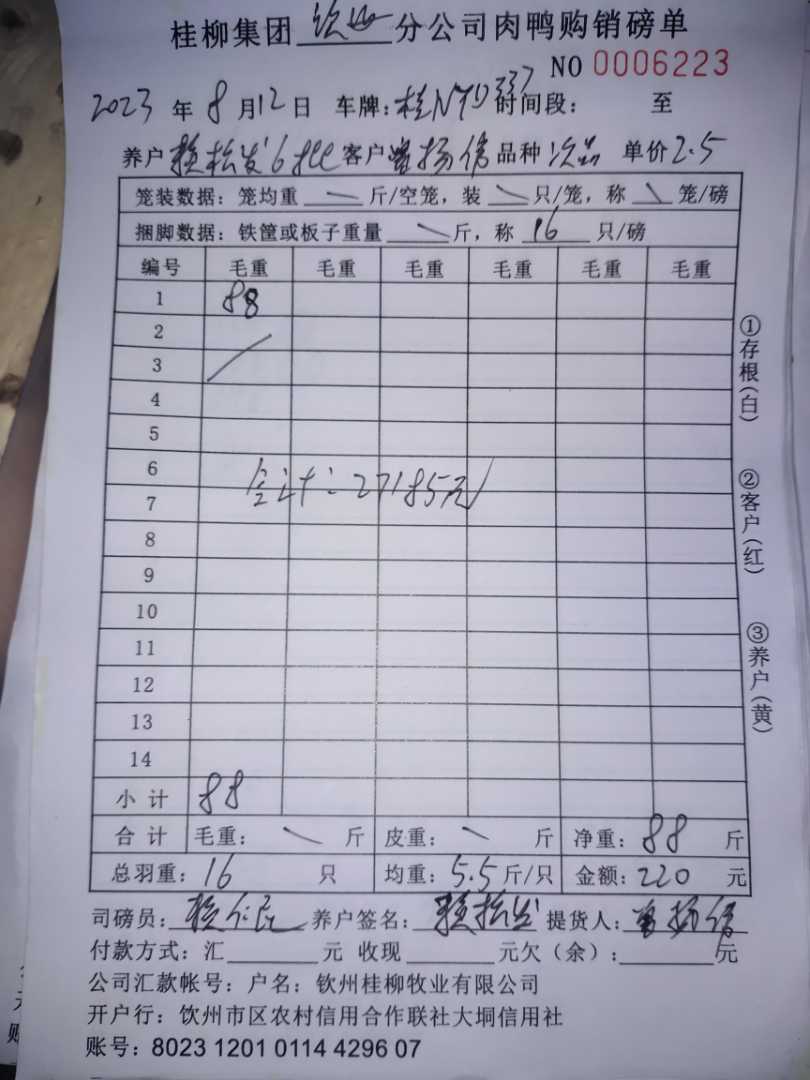 桂柳集团 分公司肉鸭购销磅单
NO 0006223
2023 年 8 月 12 日 车牌: 桂N 337 时间段: 至
养户 赖松发 6批 客户 曾扬伟 品种 次品 单价 2.5
笼装数据: 笼均重 斤/空笼, 装 只/笼, 称 笼/磅
捆脚数据: 铁筐或板子重量 斤, 称 16 只/磅
编号 毛重 毛重 毛重 毛重 毛重 毛重
1 88
2
3
4
5
6
合计: 27185元
7
8
9
10
11
12
13
14
小 计 88
合 计 毛重: 斤 皮重: 斤 净重: 88 斤
总羽重: 16 只 均重: 5.5 斤/只 金额: 220 元
司磅员: 养户签名: 赖松发 提货人: 曾扬伟
付款方式: 汇 元 收现 元欠(余): 元
公司汇款帐号: 户名: 钦州桂柳牧业有限公司
开户行: 钦州市区农村信用合作联社大垌信用社
账号: 8023 1201 0114 4296 07
①存根(白)
②客户(红)
③养户(黄)